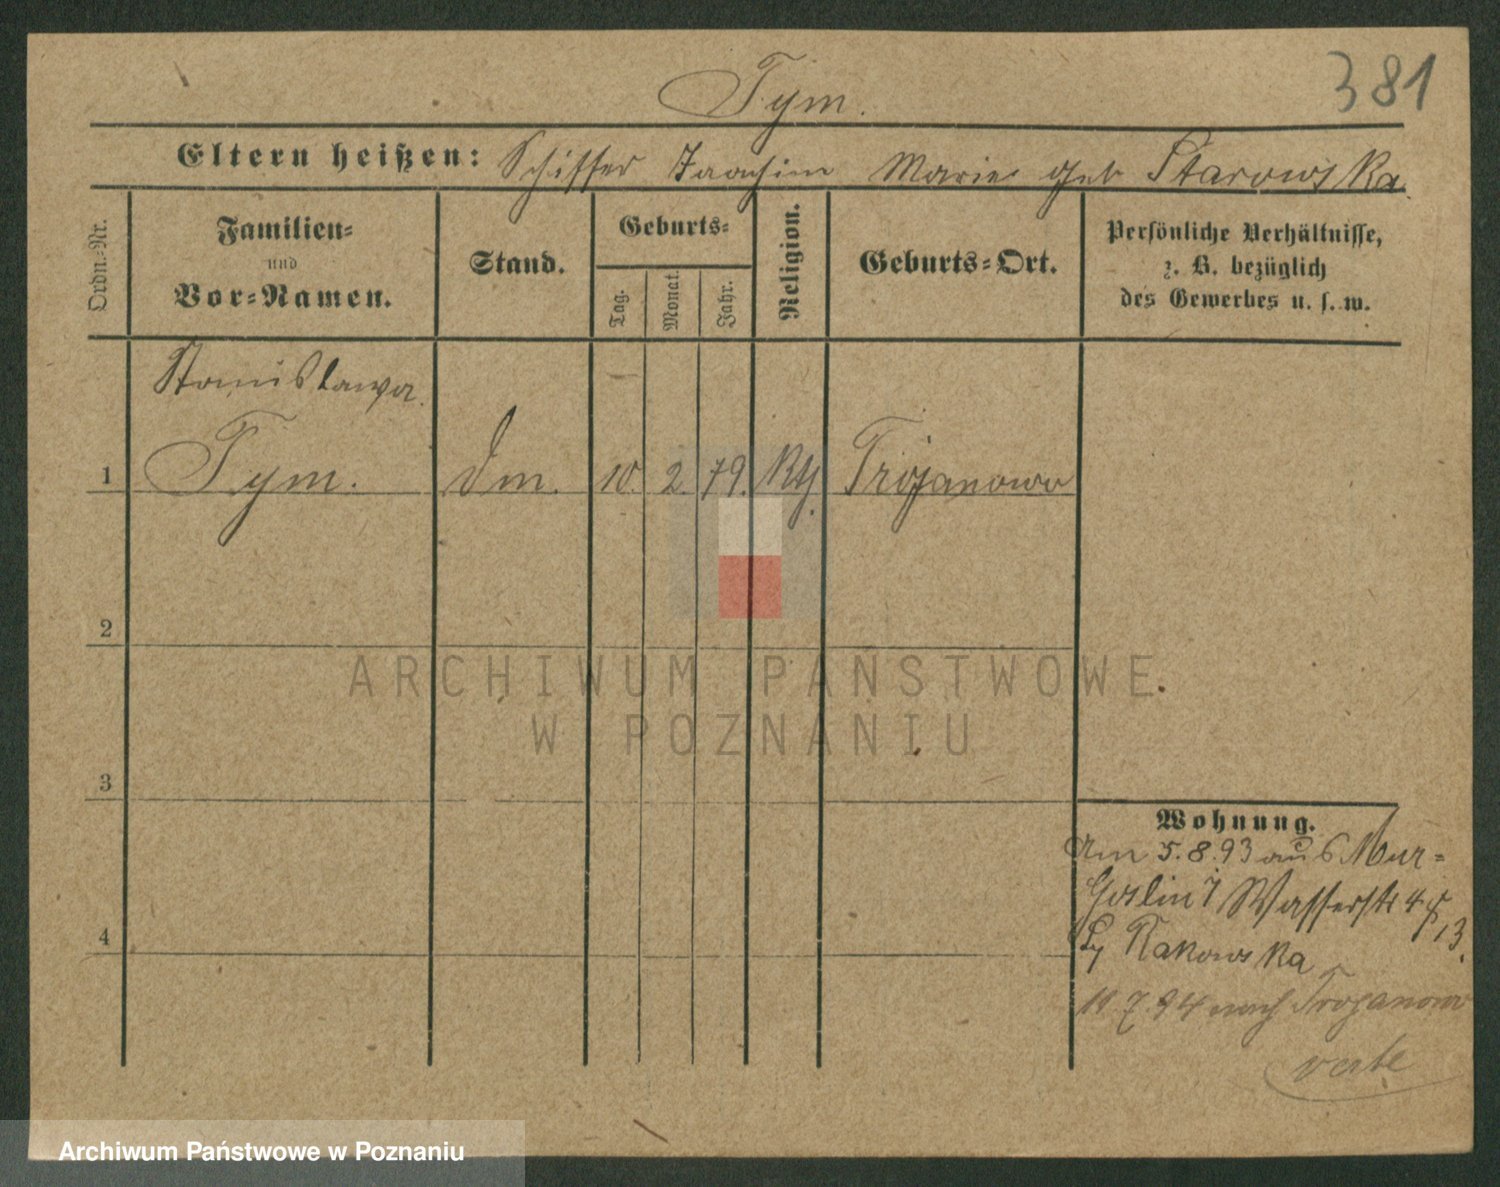 381
Tym.
Eltern heißen: Schiffer Joachim Marie geb Starowska
Ordn.-Nr.
Familien=
und
Vor=Namen.
Stand.
Geburts=
Tag.
Monat.
Jahr.
Religion.
Geburts=Ort.
Persönliche Verhältnisse,
z. B. bezüglich
des Gewerbes u. s. w.
Stanislawa
1 Tym. Dm. 10. 2. 79. Kth. Trojanowo
2
3
4
ARCHIWUM PAŃSTWOWE
W POZNANIU
Wohnung.
Am 5.8.93 aus Mur=
Goslin Wasserstr 4
13.
Rakowska
10 7.94 nach Trojanowo
Archiwum Państwowe w Poznaniu